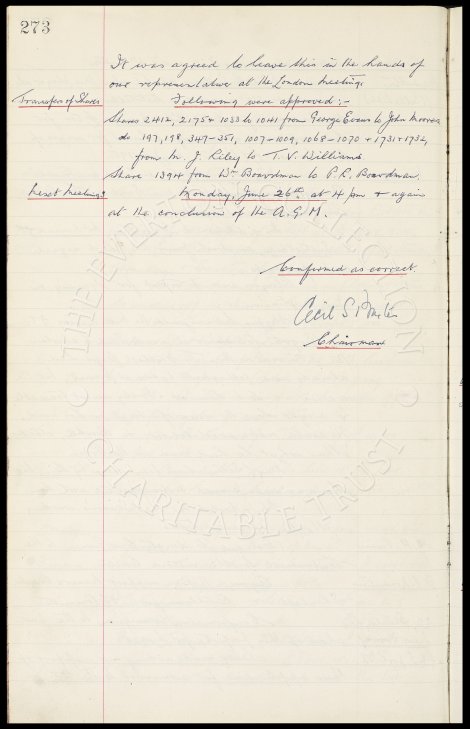 273
It was agreed to leave this in the hands of
our representative at the London meeting.
Transfer of Shares
Following were approved:-
Shares 2412, 2175 + 1033 to 1041 from George Evans to John Moores
do 197, 198, 347-351, 1007-1009, 1068-1070 + 1731 + 1732,
from M. J. Riley to T. V. Williams
Share 1394 from Wm Boardman to P. R. Boardman
Next Meetings
Monday, June 26th at 4 pm + again
at the conclusion of the A.G.M.
Confirmed as correct
Cecil S.
Chairman
THE EVERTON COLLECTION
CHARITABLE TRUST